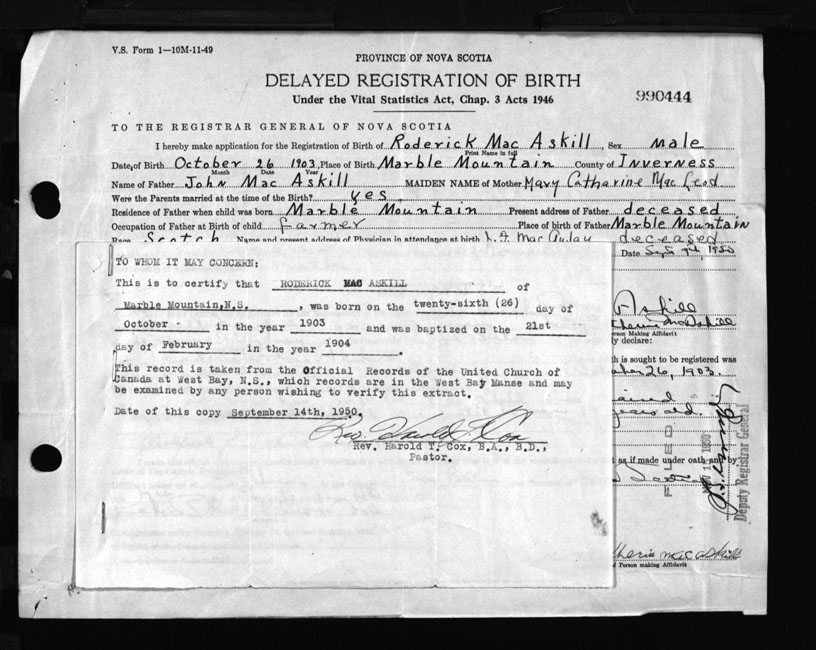 V.S. Form 1—10M-11-49
PROVINCE OF NOVA SCOTIA
DELAYED REGISTRATION OF BIRTH
Under the Vital Statistics Act, Chap. 3 Acts 1946
990444
TO THE REGISTRAR GENERAL OF NOVA SCOTIA
I hereby make application for the Registration of Birth of Roderick Mac Askill, Sex male
Print Name in full
Date of Birth October 26 1903, Place of Birth Marble Mountain County of Inverness
Month Date Year
Name of Father John Mac Askill MAIDEN NAME of Mother Mary Catharine Mac Leod
Were the Parents married at the time of Birth? yes
Residence of Father when child was born Marble Mountain Present address of Father deceased
Occupation of Father at Birth of child farmer Place of birth of Father Marble Mountain
Race Scotch Name and present address of Physician in attendance at birth Mac Aulay deceased
Date 1950
TO WHOM IT MAY CONCERN:
This is to certify that RODERICK MAC ASKILL of
Marble Mountain, N.S. , was born on the twenty-sixth (26) day of
October in the year 1903 and was baptized on the 21st
day of February in the year 1904 .
This record is taken from the Official Records of the United Church of
Canada at West Bay, N.S., which records are in the West Bay Manse and may
be examined by any person wishing to verify this extract.
Date of this copy September 14th, 1950.
Rev. Harold T. Cox
Rev. Harold T. Cox, B.A., B.D.,
Pastor.
Askill
therine MacAskill
erson Making Affidavit
y declare:
h is sought to be registered was
ber 26, 1903.
ained
years old.
as if made under oath and by
FILED
Deputy Registrar General
therine mac askill
of Person making Affidavit